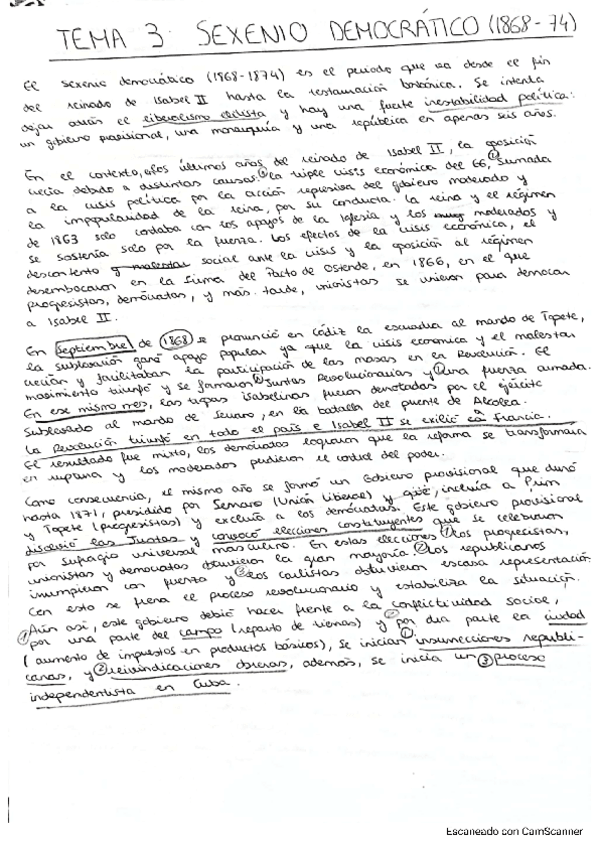 TEMA 3: SEXENIO DEMOCRÁTICO (1868-74)
El sexenio democrático (1868-1874) es el periodo que va desde el fin
del reinado de Isabel II hasta la restauración borbónica. Se intenta
dejar atrás el liberalismo elitista y hay una fuerte inestabilidad política:
un gobierno provisional, una monarquía y una república en apenas seis años.
En el contexto, los últimos años del reinado de Isabel II, la oposición
crecía debido a distintas causas: ① la triple crisis económica del 66, ② sumada
a la crisis política por la acción represiva del gobierno moderado y
la impopularidad de la reina, por su conducta. La reina y el régimen
de 1863 solo contaba con los apoyos de la Iglesia y los moderados y
se sostenía solo por la fuerza. Los efectos de la crisis económica, el
descontento y malestar social ante la crisis y la oposición al régimen
desembocaron en la firma del Pacto de Ostende, en 1866, en el que
progresistas, demócratas, y más tarde, unionistas se unieron para derrocar
a Isabel II.
En septiembre de 1868 se pronunció en Cádiz la escuadra al mando de Topete,
la sublevación ganó apoyo popular ya que la crisis económica y el malestar
crecían y facilitaban la participación de las masas en la Revolución. El
movimiento triunfó y se formaron ① Juntas Revolucionarias y ② una fuerza armada.
En ese mismo mes, las tropas isabelinas fueron derrotadas por el ejército
sublevado al mando de Serrano, en la batalla del puente de Alcolea.
La Revolución triunfó en todo el país e Isabel II se exilió en Francia.
El resultado fue mixto, los demócratas lograron que la reforma se transformara
en ruptura y los moderados perdieron el control del poder.
Como consecuencia, el mismo año se formó un Gobierno provisional que duró
hasta 1871, presidido por Serrano (Unión Liberal) y que, incluía a Prim
y Topete (progresistas) y excluía a los demócratas. Este gobierno provisional
disolvió las Juntas y convocó elecciones constituyentes que se celebraron
por sufragio universal masculino. En estas elecciones ① los progresistas,
unionistas y demócratas obtuvieron la gran mayoría ② los republicanos
irrumpieron con fuerza y ③ los carlistas obtuvieron escasa representación.
Con esto se frena el proceso revolucionario y estabiliza la situación.
Aún así, este gobierno debió hacer frente a la conflictividad social,
① por una parte del campo (reparto de tierras) y ② por otra parte la ciudad
(aumento de impuestos en productos básicos), se inician ① insurrecciones republi-
canas, y ② reivindicaciones obreras, además, se inicia un ③ proceso
independentista en Cuba.
Escaneado con CamScanner